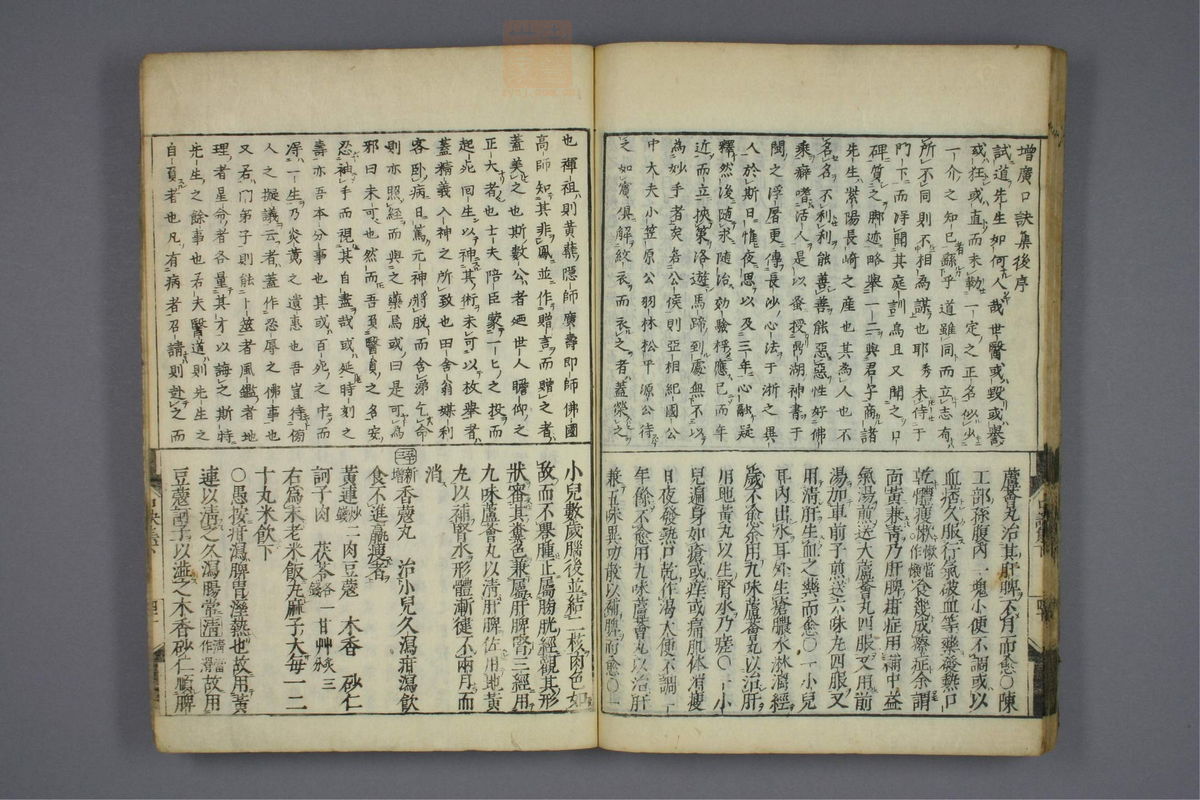 增廣口訣集後序
試道先生如何人哉世醫或毀或譽
或狂或直而未勒一定之正名似少
一介之知已蘇乎道雖同而立志有
所不同則不相為謀也耶秀未侍于
門下而浮聞其庭訓焉且又聞之口
碑質之脚迹略舉一二與君子商諸
先生紫陽長崎之產也其為人也不
名名不利利能善善能惡惡性好佛
乘癖嗜活人是以蚤授鼎湖神書于
閩之浮屠更傳長沙心法于浙之異
人於斯日惟夜思以及三年心融疑
釋然後隨求隨治効驗桴應已而年
近而立挾策洛遊馬蹄到處無不以
為妙手者矣各公侯則亞相紀國公
中大夫小笠原公羽林松平源公待
之如賓俱解紋衣而衣之者蓋榮之
蘆薈丸治其肝脾不月而愈○陳
工部孫腹內一塊小便不調或以
血積久服行氣破血等藥發熱口
乾體瘦嫰食幾成瘵症余謂
面黃兼靑乃肝脾疳症用補中益
氣湯煎送大蘆薈丸四服又用前
湯加車前子煎送六味丸四服又
用清肝生血之藥而愈○一小兒
耳內出水耳外生瘡膿水淋漓經
歲不愈余用九味蘆薈丸以治肝
用地黃丸以生腎水乃瘥○一小
兒遍身如疥或痒或痛肌体消瘦
日夜發熱口乾作渴大便不調
年餘不愈用九味蘆薈丸以治肝
兼五味異功散以補脾而愈○一
也禪祖則黃蘗隱師廣壽即師佛國
高師知其非鳳並作贈言而贈之者
蓋美之也斯數公者廼世人瞻仰之
正大者也士夫陪臣蒙一匕之投而
起死回生以神其術未可以枚舉者
蓋精義入神之所致也田舍翁媒利
客臥病日篤元神將脫而含涕乞命
則亦照經而與之藥焉或曰是可為
邪曰未可也然而吾負醫負之名安
忍袖手而視其自盡哉或延時刻之
壽亦吾本分事也其或百死之中而
得一生乃炎黃之遺惠也吾豈待傍
人之擬議云者蓋作忍辱之佛事也
又若門弟子則能卜筮者風鑑者地
理者星命者各量其才以誨之斯特
先生之餘事也若夫醫道則先生之
自負者也凡有病者召請則赴之而
小兒數歲腦後並結二核肉色如
故而不舉腫止屬膀胱經觀其形
狀審其糞色兼屬肝脾腎三經用
九味蘆薈丸以清肝脾佐用地黃
丸以補腎水形體漸健不兩月而
消
新增香蔻丸 治小兒久瀉疳瀉飲
食不進羸瘦者
黃連 肉豆蔻 木香 砂仁
訶子肉 茯苓 甘艸
右為末老米飯丸麻子大每一二
十丸米飲下
○愚按疳瀉脾胃溼熱也故用黃
連以清之久瀉腸常清故用
豆蔻訶子以澁之木香砂仁順脾